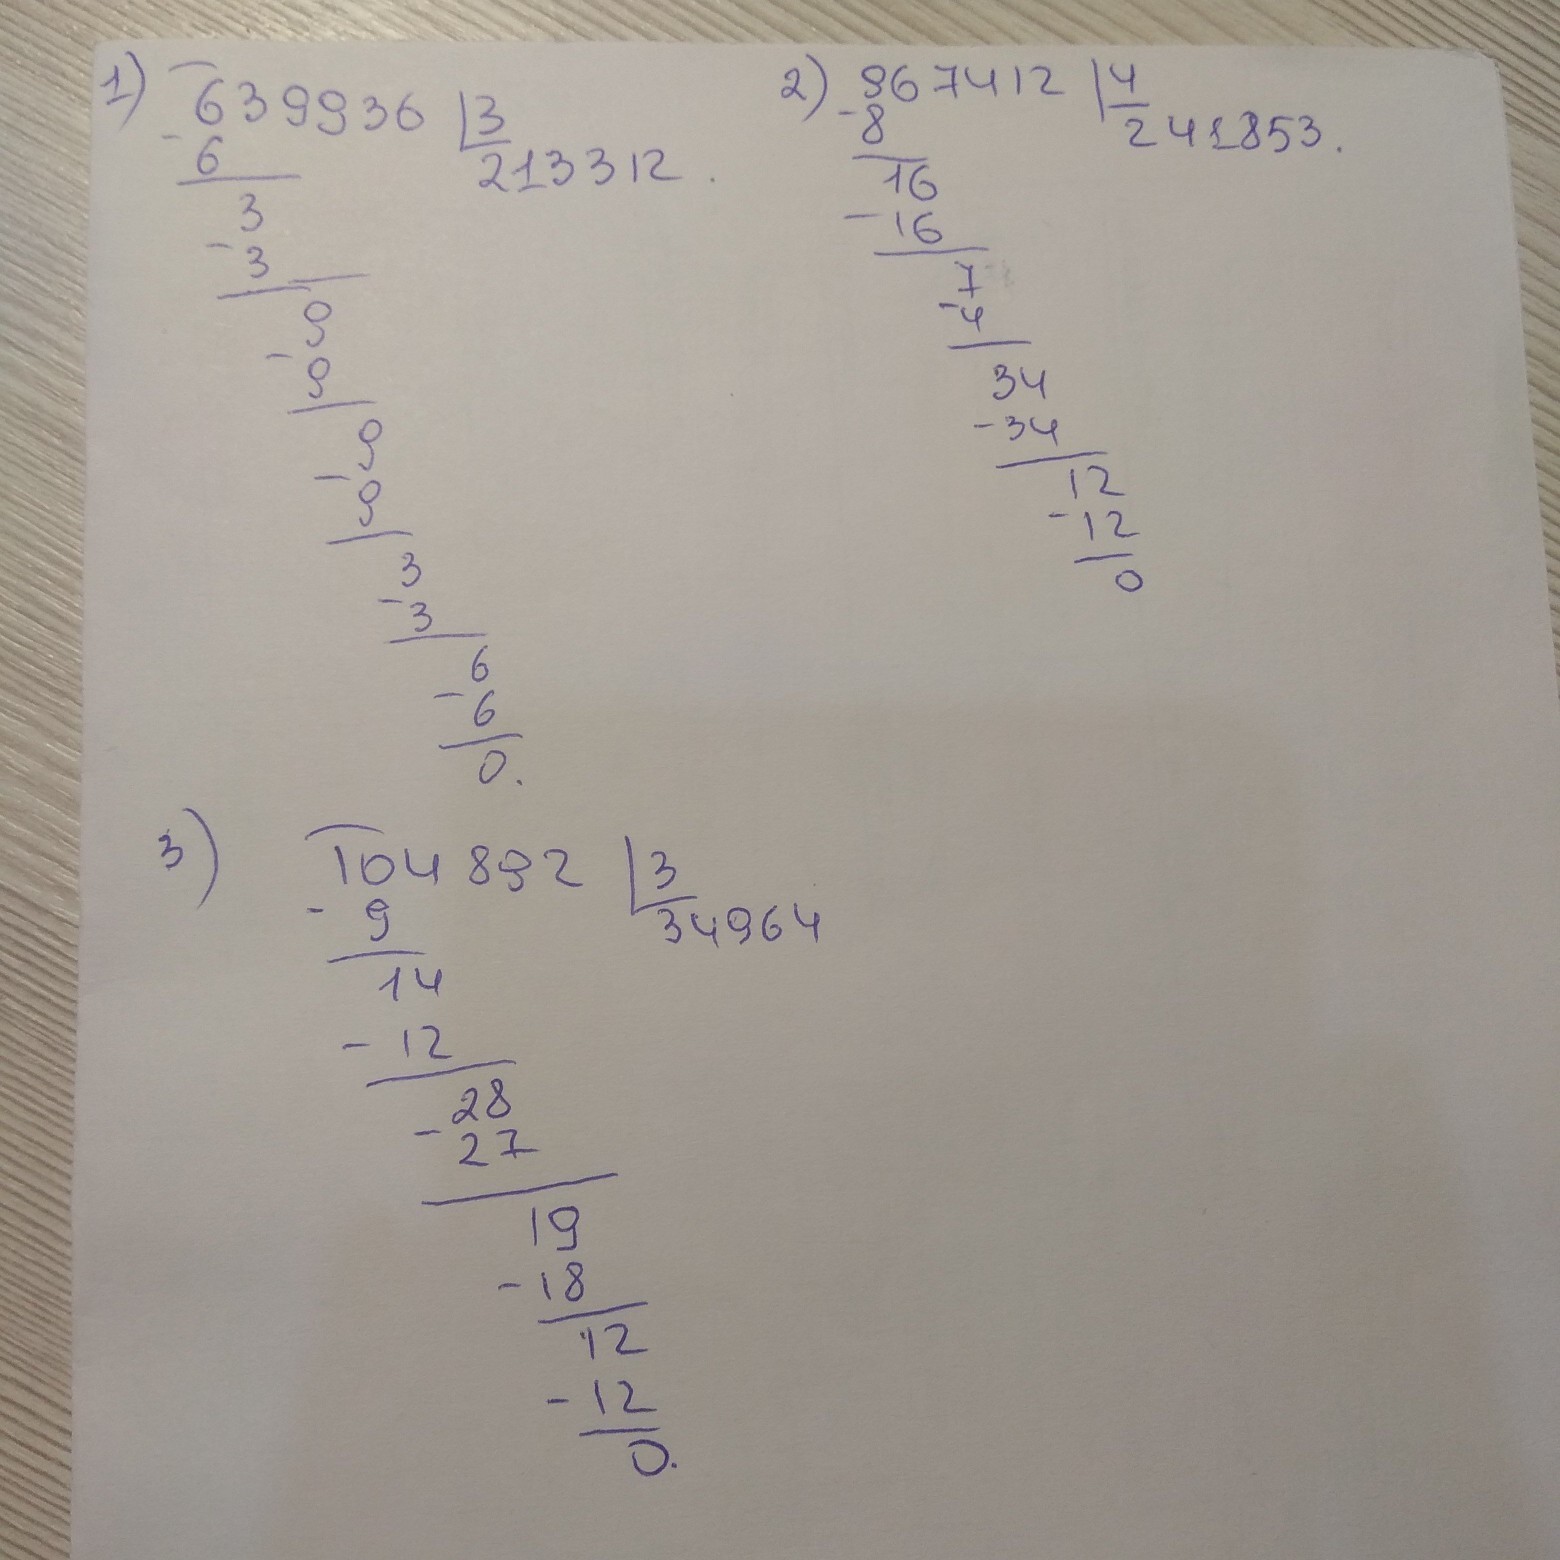 1) 639936 | 3
- 6 213312.
3
- 3
9
- 9
9
- 9
3
- 3
6
- 6
0.
2) 967412 | 4
- 8 241853.
16
- 16
7
- 4
34
- 34
12
- 12
0
3) 104892 | 3
- 9 34964
14
- 12
28
- 27
19
- 18
12
- 12
0.